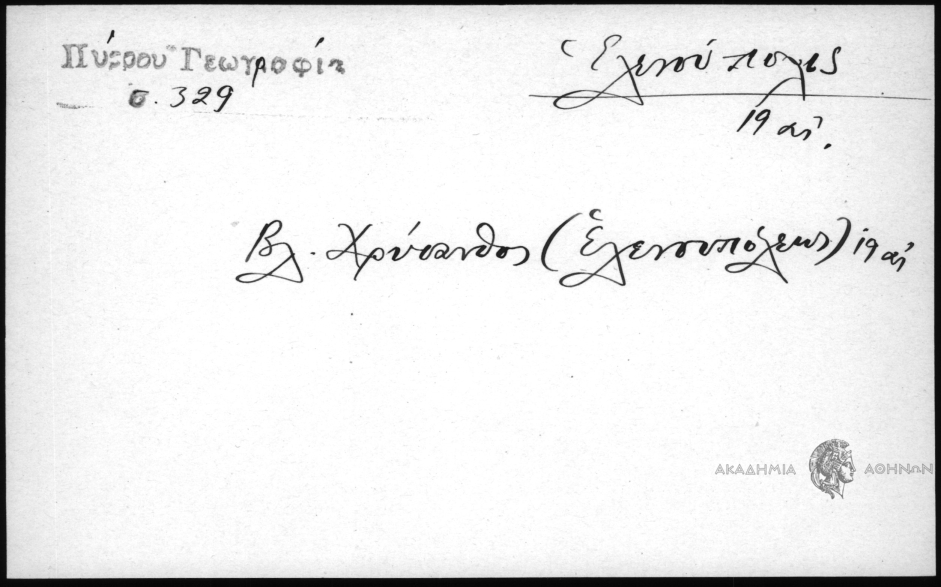 Πύρρου Γεωγραφία
σ. 329
Ἑλενούπολις
19 αἰ.
Βλ. Χρύσανθος (Ἑλενουπόλεως) 19 αἰ
ΑΚΑΔΗΜΙΑ ΑΘΗΝΩΝ